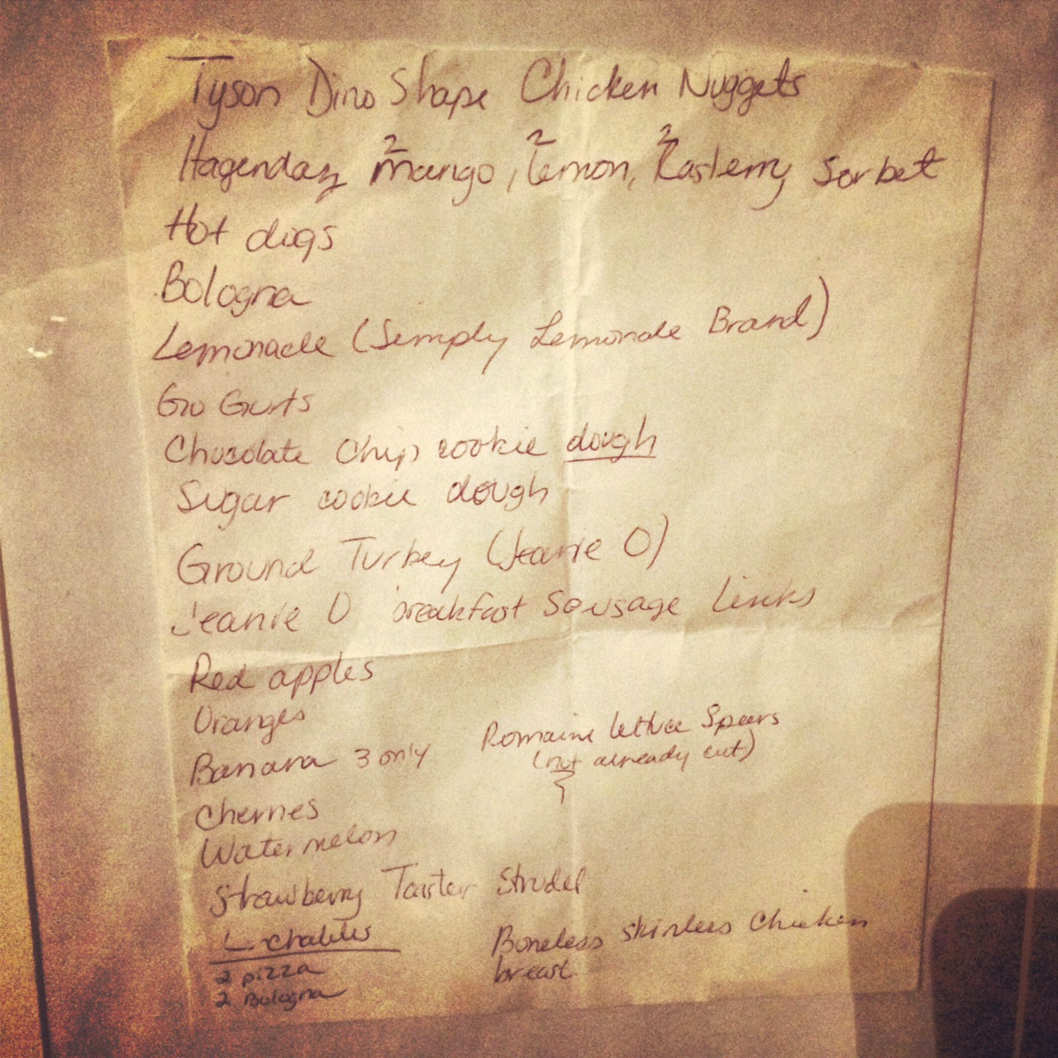 Tyson Dino Shape Chicken Nuggets
Hagendaz 2 mango, 2 Lemon, 2 Rasberry Sorbet
Hot dogs
Bologna
Lemonade (Simply Lemonade Brand)
Go Gurts
Chocolate Chip cookie dough
Sugar cookie dough
Ground Turkey (Jeanie O)
Jeanie O breakfast Sausage Links
Red apples
Oranges
Banana 3 only
Romaine lettuce Spears
(not already cut)
Cherries
Watermelon
Strawberry Toaster Strudel
L-chables
2 pizza
2 Bologna
Boneless skinless Chicken
breast